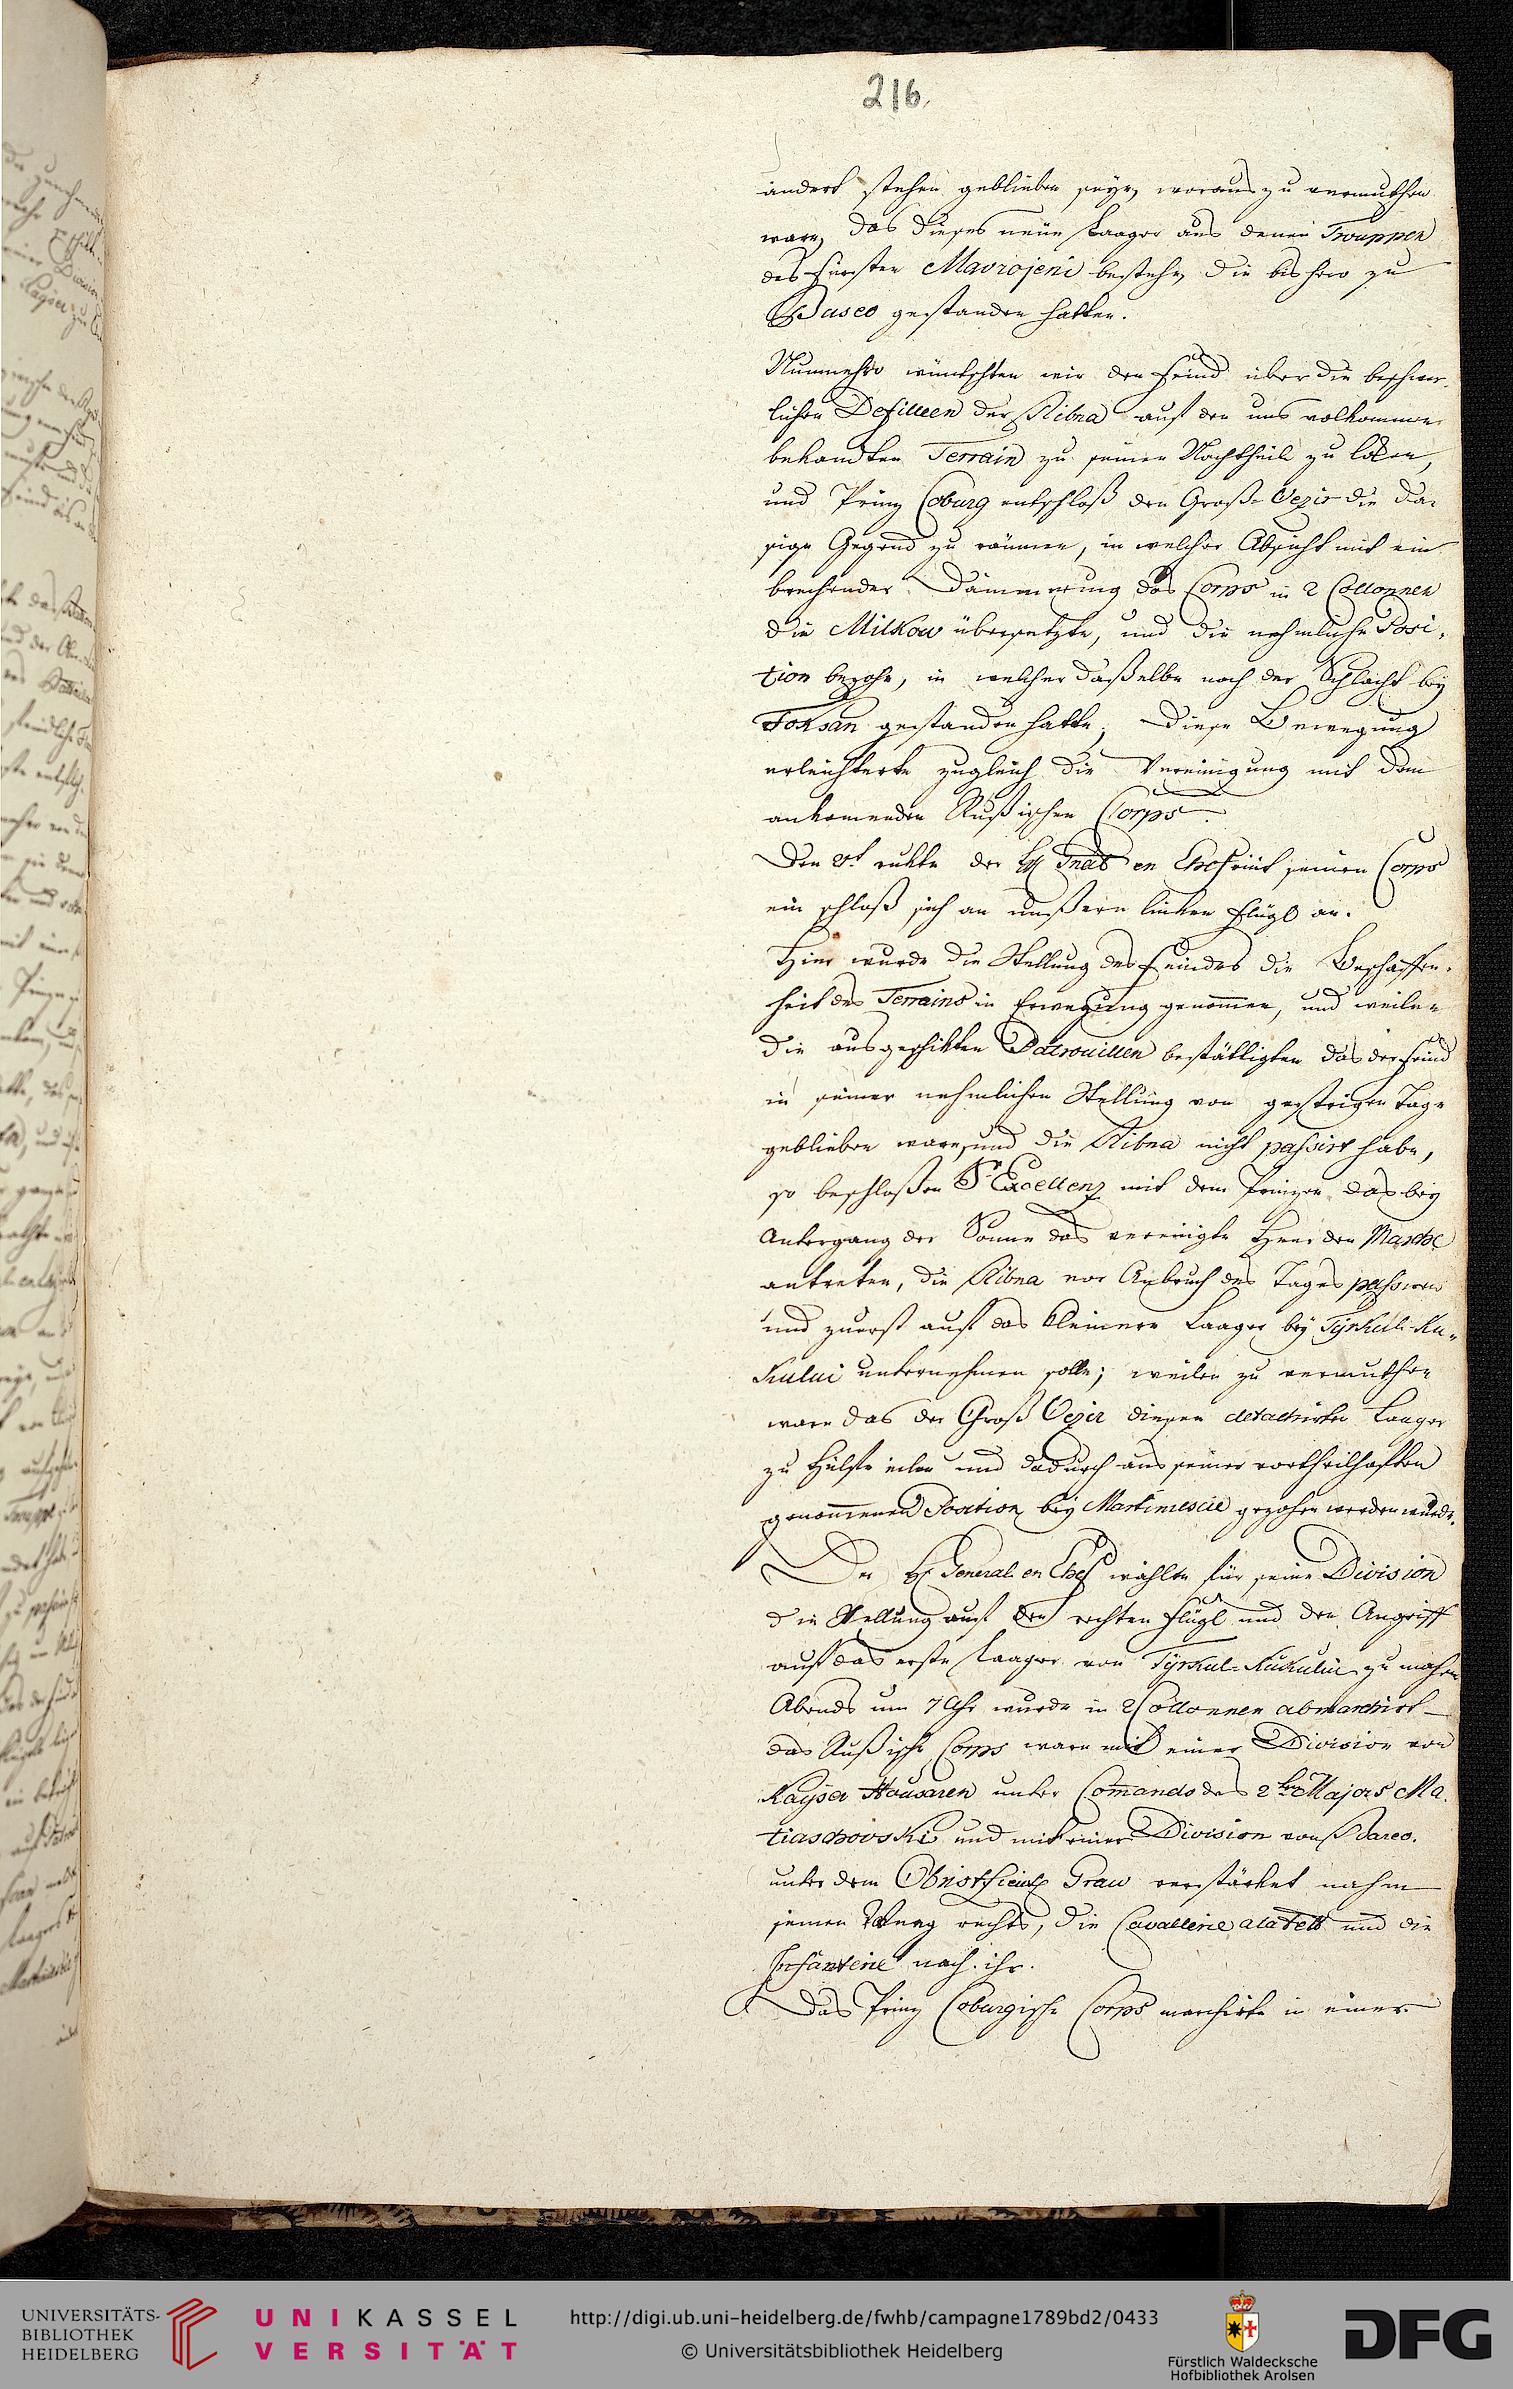 216.
andert stehen geblieben seÿe, woraus zu vermuthen
ware, das dieses neue Laager aus denen Trouppen
des Fürsten Mavrojeni bestehe, die bishero zu
Buseo gestanden hatten.
Nunmehro wünschten wir den Feind über die beschwer-
lichen Defileen der Ribna auf den uns volkommen
bekandten Terrain zu seinen Nachtheile zu loken,
und Prinz Coburg entschloß den Groß-Vezir die da-
sige Gegend zu räumen, in welcher Absicht mit ein
brechender Dämmerung das Corps in 2 Collonnen
die Milkow übersetzte, und die nehmliche Posi-
tion bezohe, in welcher daßelbe nach der Schlacht beÿ
Foksan gestanden hatte, Diese Bewegung
erleichterte zugleich die Vereinigung mit dem
ankomenden Rußischen Corps.
Den rukte der en Chef mit seinen Corps
ein schloß sich an unßern linken Flügl an.
Hier wurde die Stellung des Feindes die Beschaffen-
heit des Terrains in Erwegung genommen, und weilen
die ausgeschikten Patrouillen bestättigten das der Feind
in seiner nehmlichen Stellung von gestrigen Tage
geblieben ware, und die Ribna nicht passirt habe,
so beschloßen Sr Excellenz mit dem Prinzen das beÿ
Untergang der Sonne das vereinigte Heer den Marche
antreten, die Ribna vor Anbruch des Tages passiren
und zuerst auf das kleinere Laager beÿ Tyrkuli-Ku-
kului unternehmen solle; weilen zu vermuthen
ware das der Groß Vezir diesen detachirten Laager
zu Hülfe eilen und dadurch aus seiner vortheilhaften
genommenen Position beÿ Martinescie gezohen werden würde.
Der H General en Chef wählte für seine Division
die Stellung auf den rechten Flügl und den Angriff
auf das erste Laager von Tyrkul-Kukului zu machen
Abends um 7 Uhr wurde in 2 Collonnen abmarchirt
das Rußische Corps ware mit einer Division von
Kayser Housaren unter Commando des 2ten Majors Ma-
tiaschovski und mit einer Division von Barco.
unter dem Obristlieut Graw verstärket nahm
seinen Weeg rechts, die Cavallerie a la Tett und die
Infanterie nach ihr.
Das Prinz Coburgische Corps marchirte in einer
UNIVERSITÄTS-
BIBLIOTHEK
HEIDELBERG
UNIKASSEL
VERSITÄT
http://digi.ub.uni-heidelberg.de/fwhb/campagne1789bd2/0433
© Universitätsbibliothek Heidelberg
Fürstlich Waldecksche
Hofbibliothek Arolsen
DFG